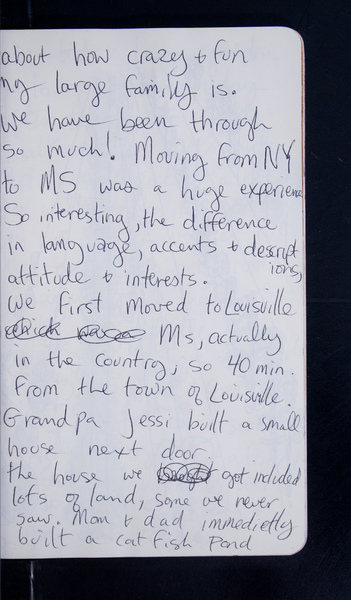 about how crazy & fun
my large family is.
We have been through
so much! Moving from NY
to MS was a huge experience
So interesting, the difference
in language, accents & descript
ions,
attitude & interests.
We first moved to Louisville
Ms, actually
in the country, so 40 min.
from the town of Louisville.
Grandpa Jessi built a small
house next door.
the house we got included
lots of land, some we never
saw. Mom & dad immedietly
built a cat fish pond